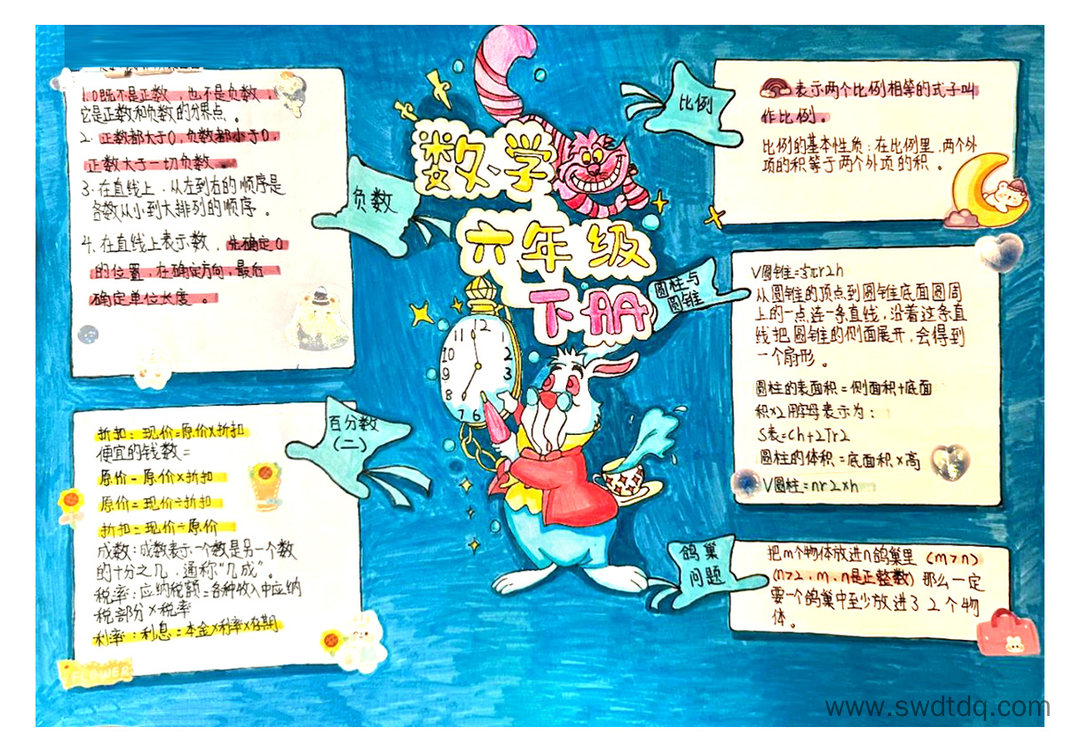 数学
六年级
下册
负数
1.0既不是正数，也不是负数，
它是正数和负数的分界点。
2.正数都大于0，负数都小于0，
正数大于一切负数。
3.在直线上，从左到右的顺序是
各数从小到大排列的顺序。
4.在直线上表示数，先确定0
的位置，在确定方向，最后
确定单位长度。
百分数
（二）
折扣：现价=原价×折扣
便宜的钱数=
原价-原价×折扣
原价=现价÷折扣
折扣=现价÷原价
成数：成数表示一个数是另一个数
的十分之几，通称“几成”。
税率：应纳税额=各种收入中应纳
税部分×税率
利率：利息=本金×利率×存期
FLOWER
比例
表示两个比例相等的式子叫
作比例。
比例的基本性质：在比例里，两个外
项的积等于两个外项的积。
圆柱与
圆锥
V圆锥=πr2h
从圆锥的顶点到圆锥底面圆周
上的一点连一条直线，沿着这条直
线把圆锥的侧面展开，会得到
一个扇形。
圆柱的表面积=侧面积+底面
积×2用字母表示为：
S表=Ch+2πr2
圆柱的体积=底面积×高
V圆柱=πr2×h
鸽巢
问题
把m个物体放进n鸽巢里（m>n）
(n>2，m，n是正整数）那么一定
要一个鸽巢中至少放进了2个物
体。
12
11
10
9
8
7
6
2
3
www.swdtdq.com